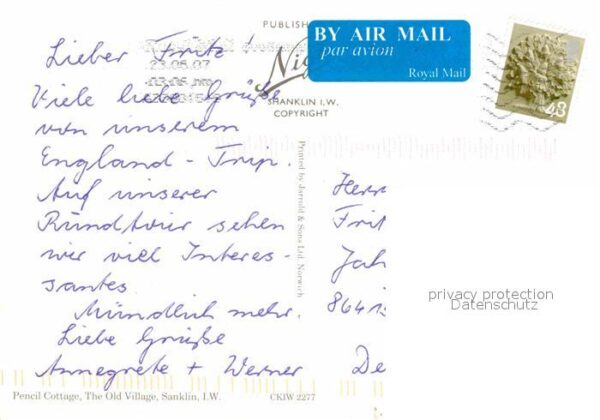 PUBLISH
BY AIR MAIL
par avion
Royal Mail
48
Lieber Fritz!
23.05.07
03.06 pm
Viele liebe Grüße
SHANKLIN I.W.
COPYRIGHT
von unserem
England - Trip.
Auf unserer
Rundtour sehen
wir viel Interes-
santes.
Mündlich mehr.
Liebe Grüße
Annegrete + Werner
Printed by Jarrold & Sons Ltd. Norwich
Herr
Frit
Jah
8641
De
privacy protection
Datenschutz
Pencil Cottage, The Old Village, Sanklin, I.W.
CKIW 2277